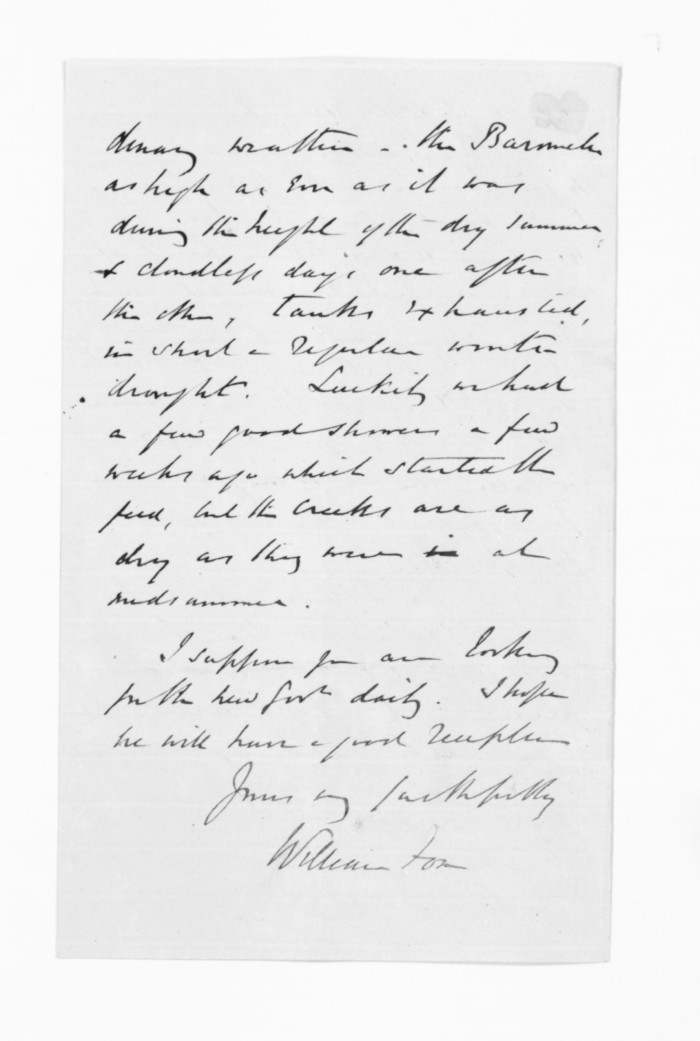 dinary weather - the Barometer
as high as ever as it was
during the height of the dry summer,
& cloudless days one after
the other, tanks exhausted,
in short a regular winter
drought. Luckily we had
a few good showers a few
weeks ago which started the
feed, but the creeks are as
dry as they were in at
midsummer.
I suppose you are looking
for the new Govr daily. I hope
he will have a good reception
Yours very faithfully
William Fox